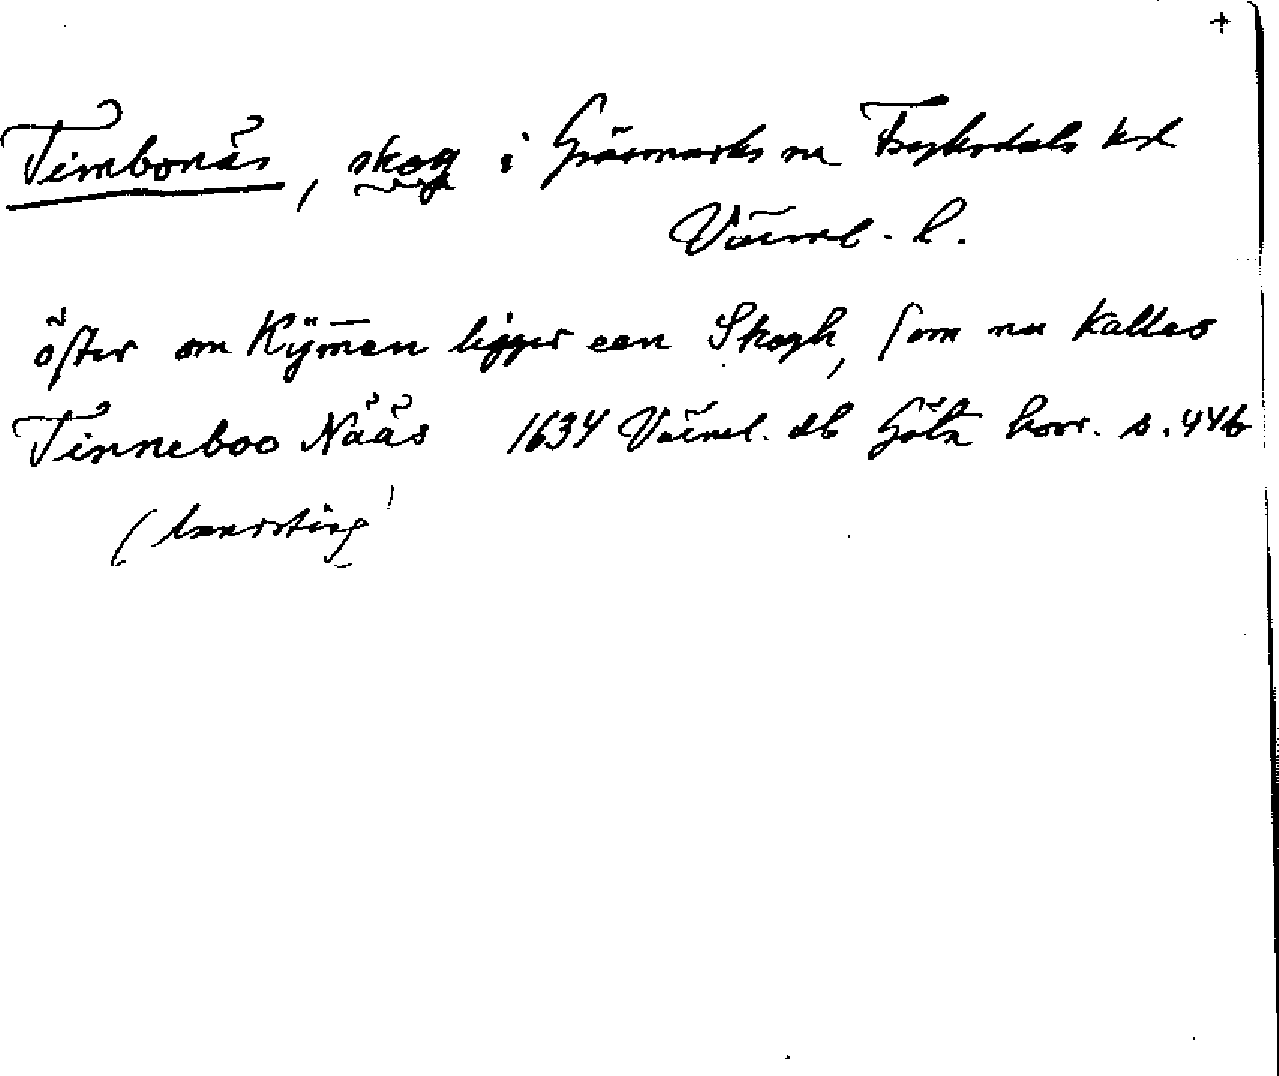 +
Timbonäs, skog i Gräsmarks sn Fryksdals hd
Värml. l.
öster om Kÿm̄en ligger een Skogh, som nu kallas
Tinneboo Nääs 1634 Värml. db Göta hovr. s. 446